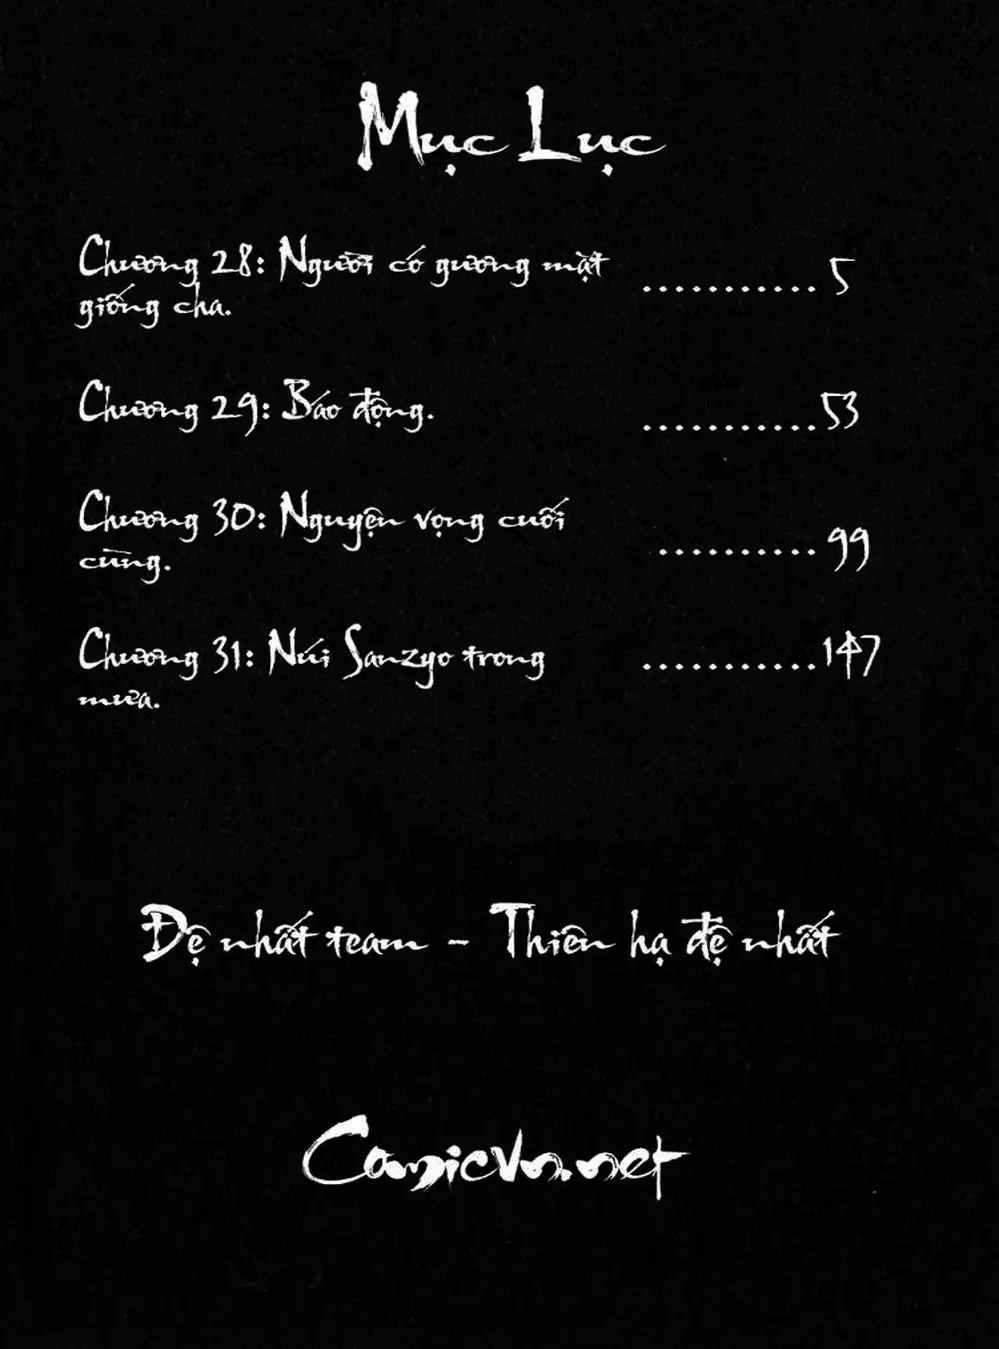 Mục Lục
Chương 28: Người có gương mặt ........... 5
giống cha.
Chương 29: Báo động. ...........53
Chương 30: Nguyện vọng cuối .......... 99
cùng.
Chương 31: Núi Sanzyo trong ...........147
mưa.
Đệ nhất team - Thiên hạ đệ nhất
Comicvn.net